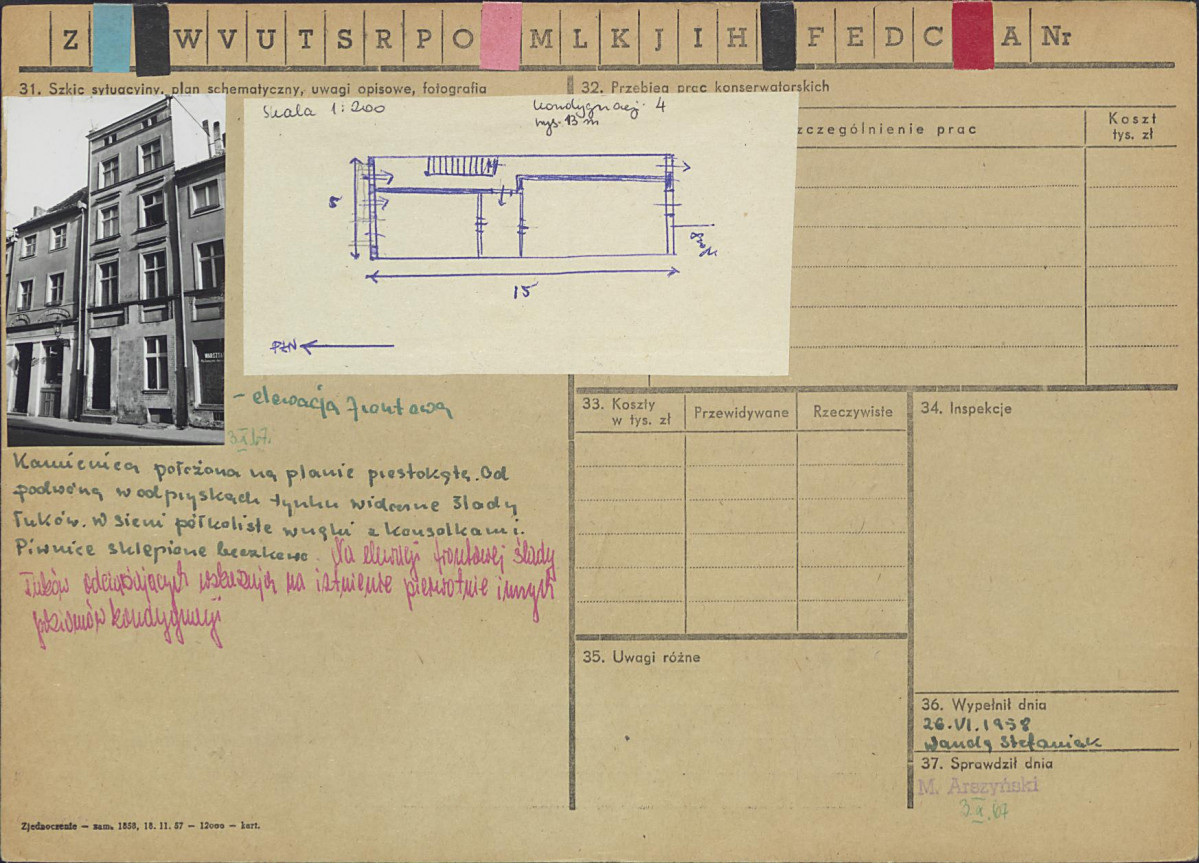 Z W V U T S R P O M L K J I H F E D C A Nr
31. Szkic sytuacyjny, plan schematyczny, uwagi opisowe, fotografia
32. Przebieg prac konserwatorskich
Skala 1:200
kondygnacji 4
wys. 13 m
zczególnienie prac
Koszt
tys. zł
5
15
PŁN
WARSZTA
- elewacja frontowa
3 X 67.
Kamienica położona na planie prostokąta. Od
podwórza w odpryskach tynku widoczne ślady
łuków. W sieni półkoliste wnęki z konsolkami.
Piwnice sklepione beczkowo. Na elewacji frontowej ślady
łuków odciążających wskazują na istnienie pierwotnie innych
poziomów kondygnacji
33. Koszty
w tys. zł
Przewidywane
Rzeczywiste
34. Inspekcje
35. Uwagi różne
36. Wypełnił dnia
26.VI.1958
Wanda Stefaniak
37. Sprawdził dnia
M. Arszyński
3 X. 67
Zjednoczenie — zam. 1858, 18. 11. 57 — 12000 — kart.